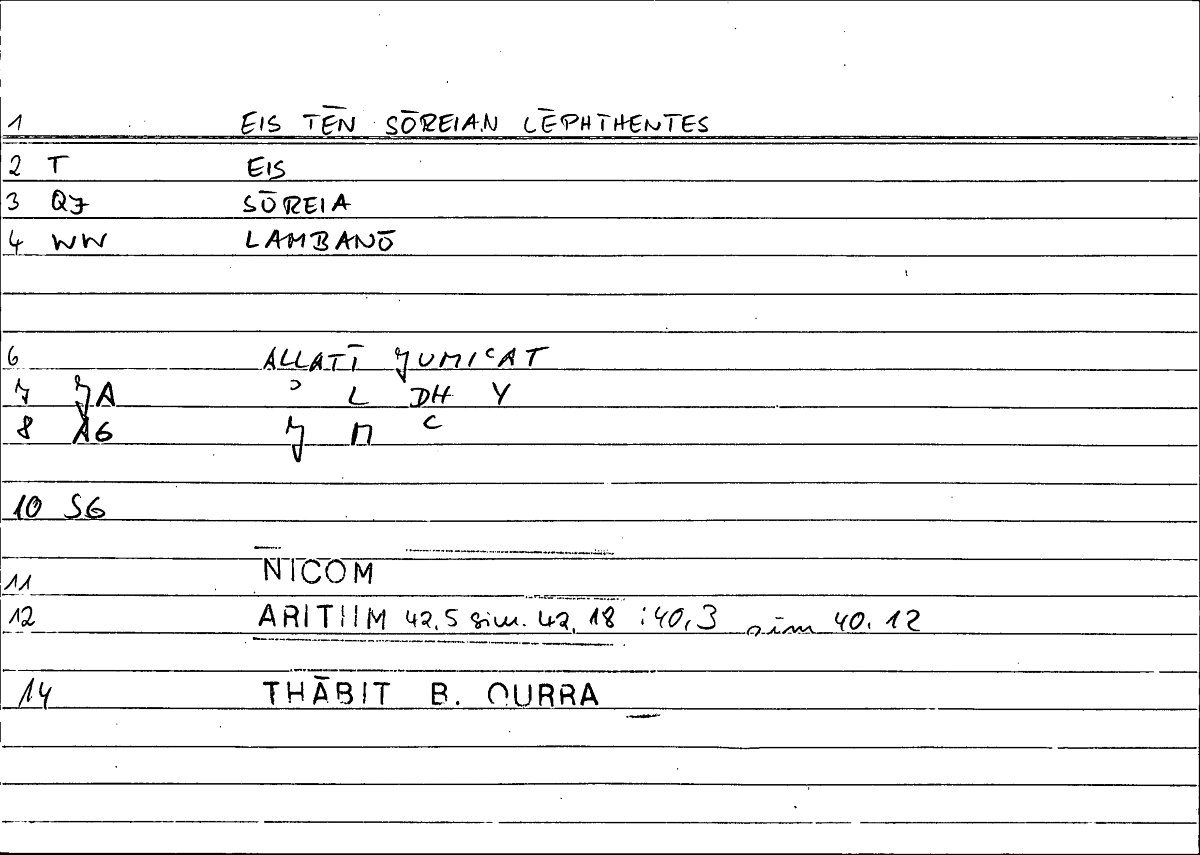 1 EIS TĒN SŌREIAN LĒPHTHENTES
2 T EIS
3 QJ SŌREIA
4 WW LAMBANŌ
6 ALLATĪ ӋUMIᶜAT
7 ӋA ʾ L DH Y
8 A6 Ӌ M ᶜ
10 SG
11 NICOM
12 ARITHM 42,5 sim. 42,18 :40,3 sim 40.12
14 THĀBIT B. QURRA